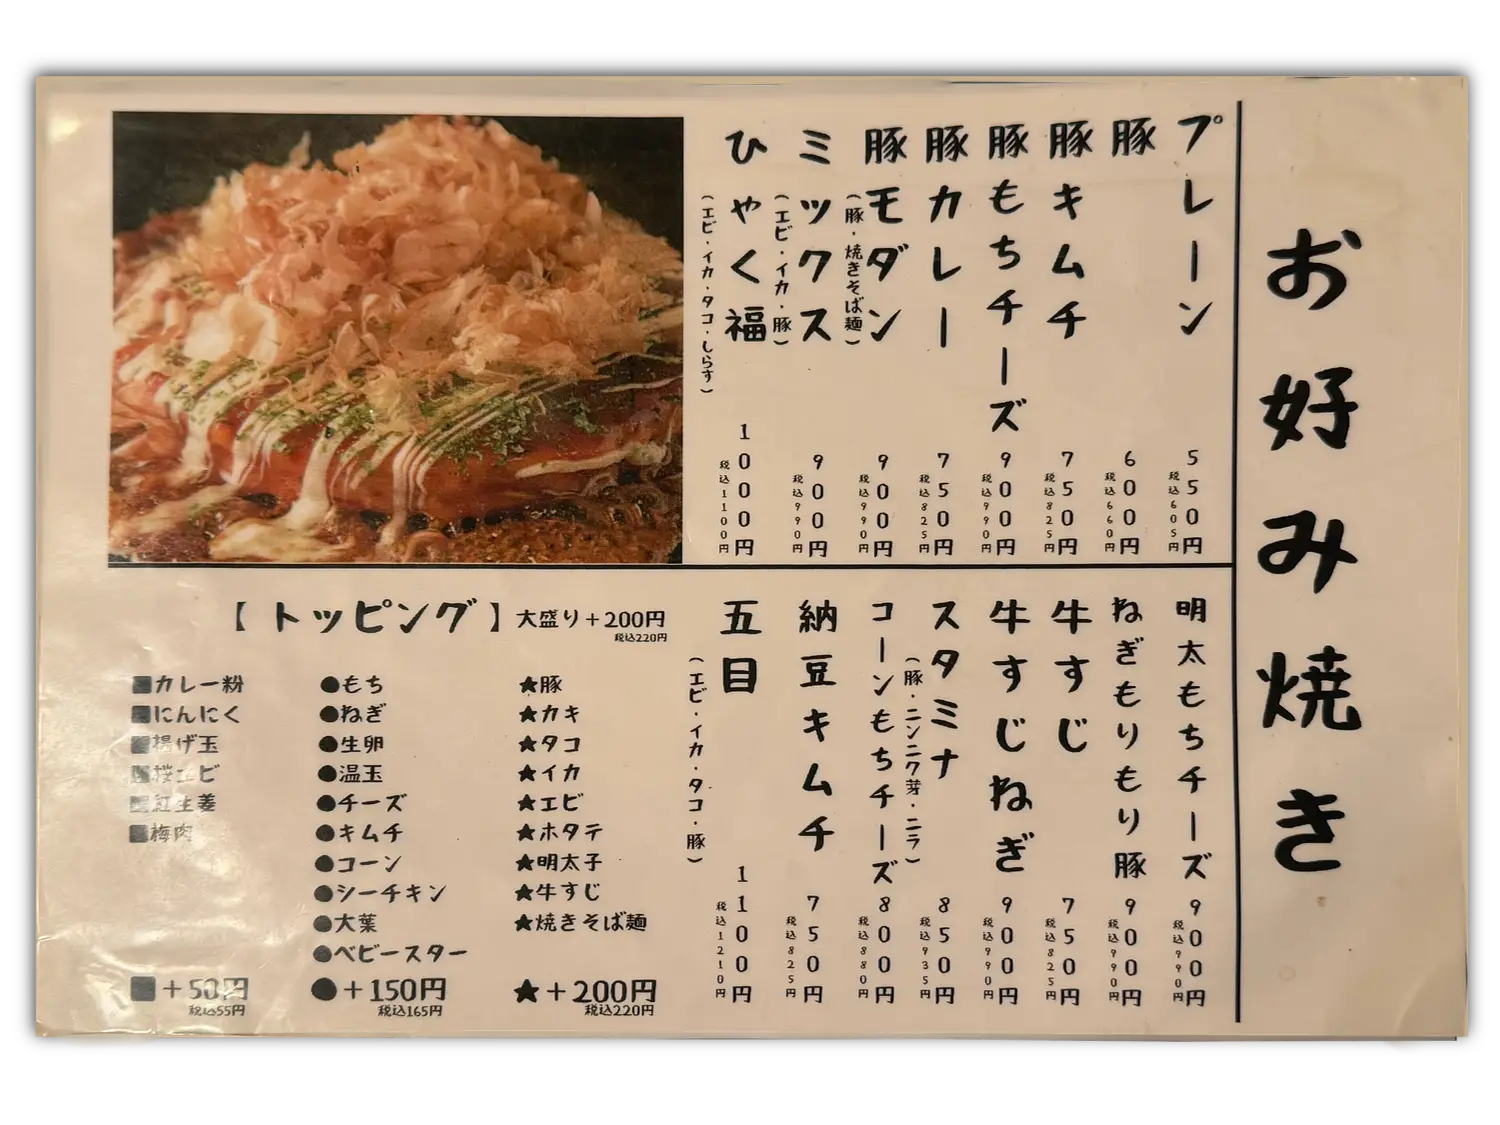 お好み焼き
プレーン 550円
税込605円
豚 600円
税込660円
豚キムチ 750円
税込825円
豚もちチーズ 900円
税込990円
豚カレー 750円
税込825円
豚モダン 900円
(豚・焼きそば麺)
税込990円
ミックス 900円
(エビ・イカ・豚)
税込990円
ひゃく福 1000円
(エビ・イカ・タコ・しらす)
税込1100円
明太もちチーズ 900円
税込990円
ねぎもりもり豚 900円
税込990円
牛すじ 750円
税込825円
牛すじねぎ 900円
税込990円
スタミナ 850円
(豚・ニンニク芽・ニラ)
税込935円
コーンもちチーズ 800円
税込880円
納豆キムチ 750円
税込825円
五目 1100円
(エビ・イカ・タコ・豚)
税込1210円
【トッピング】大盛り+200円
税込220円
■カレー粉
■にんにく
■揚げ玉
■桜エビ
■紅生姜
■梅肉
■+50円
税込55円
●もち
●ねぎ
●生卵
●温玉
●チーズ
●キムチ
●コーン
●シーチキン
●大葉
●ベビースター
●+150円
税込165円
★豚
★カキ
★タコ
★イカ
★エビ
★ホタテ
★明太子
★牛すじ
★焼きそば麺
★+200円
税込220円